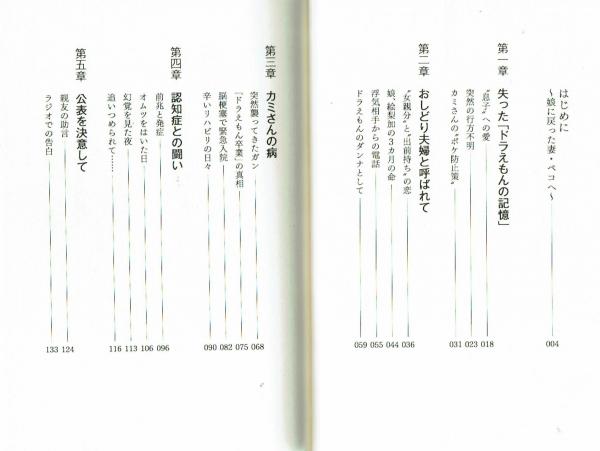 はじめに
〜娘に戻った妻・ペコへ〜 004
第一章 失った「ドラえもんの記憶」
“息子”への愛 018
突然の行方不明 023
カミさんの“ボケ防止策” 031
第二章 おしどり夫婦と呼ばれて
“女親分”と“出前持ち”の恋 036
娘、絵梨加の3カ月の命 044
浮気相手からの電話 055
ドラえもんのダンナとして 059
第三章 カミさんの病
突然襲ってきたガン 068
「ドラえもん卒業」の真相 075
脳梗塞で緊急入院 082
辛いリハビリの日々 090
第四章 認知症との闘い
前兆と発症 096
オムツをはいた日 106
幻覚を見た夜 113
追いつめられて…… 116
第五章 公表を決意して
親友の助言 124
ラジオでの告白 133